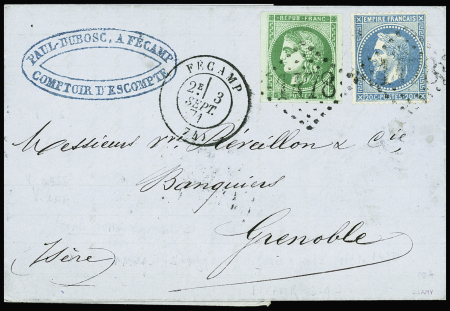 PAUL-DUBOSC, A FÉCAMP
COMPTOIR D'ESCOMPTE
FÉCAMP
2E 3
SEPT.
71
(74)
REPUB. FRANC.
EMPIRE FRANÇAIS
20 C POSTES 20
Messieurs & Cie
Banquiers
Grenoble
Isère